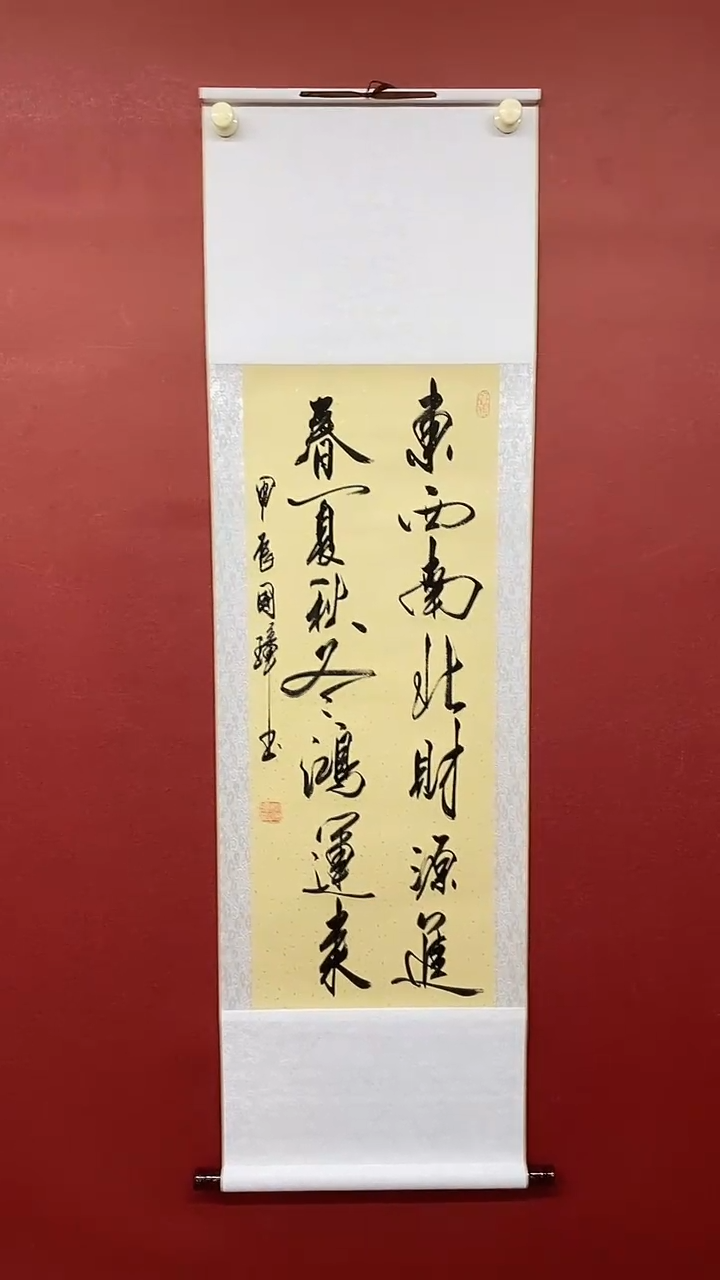 東西南北財源進
春夏秋冬鴻運來
甲辰國璋書